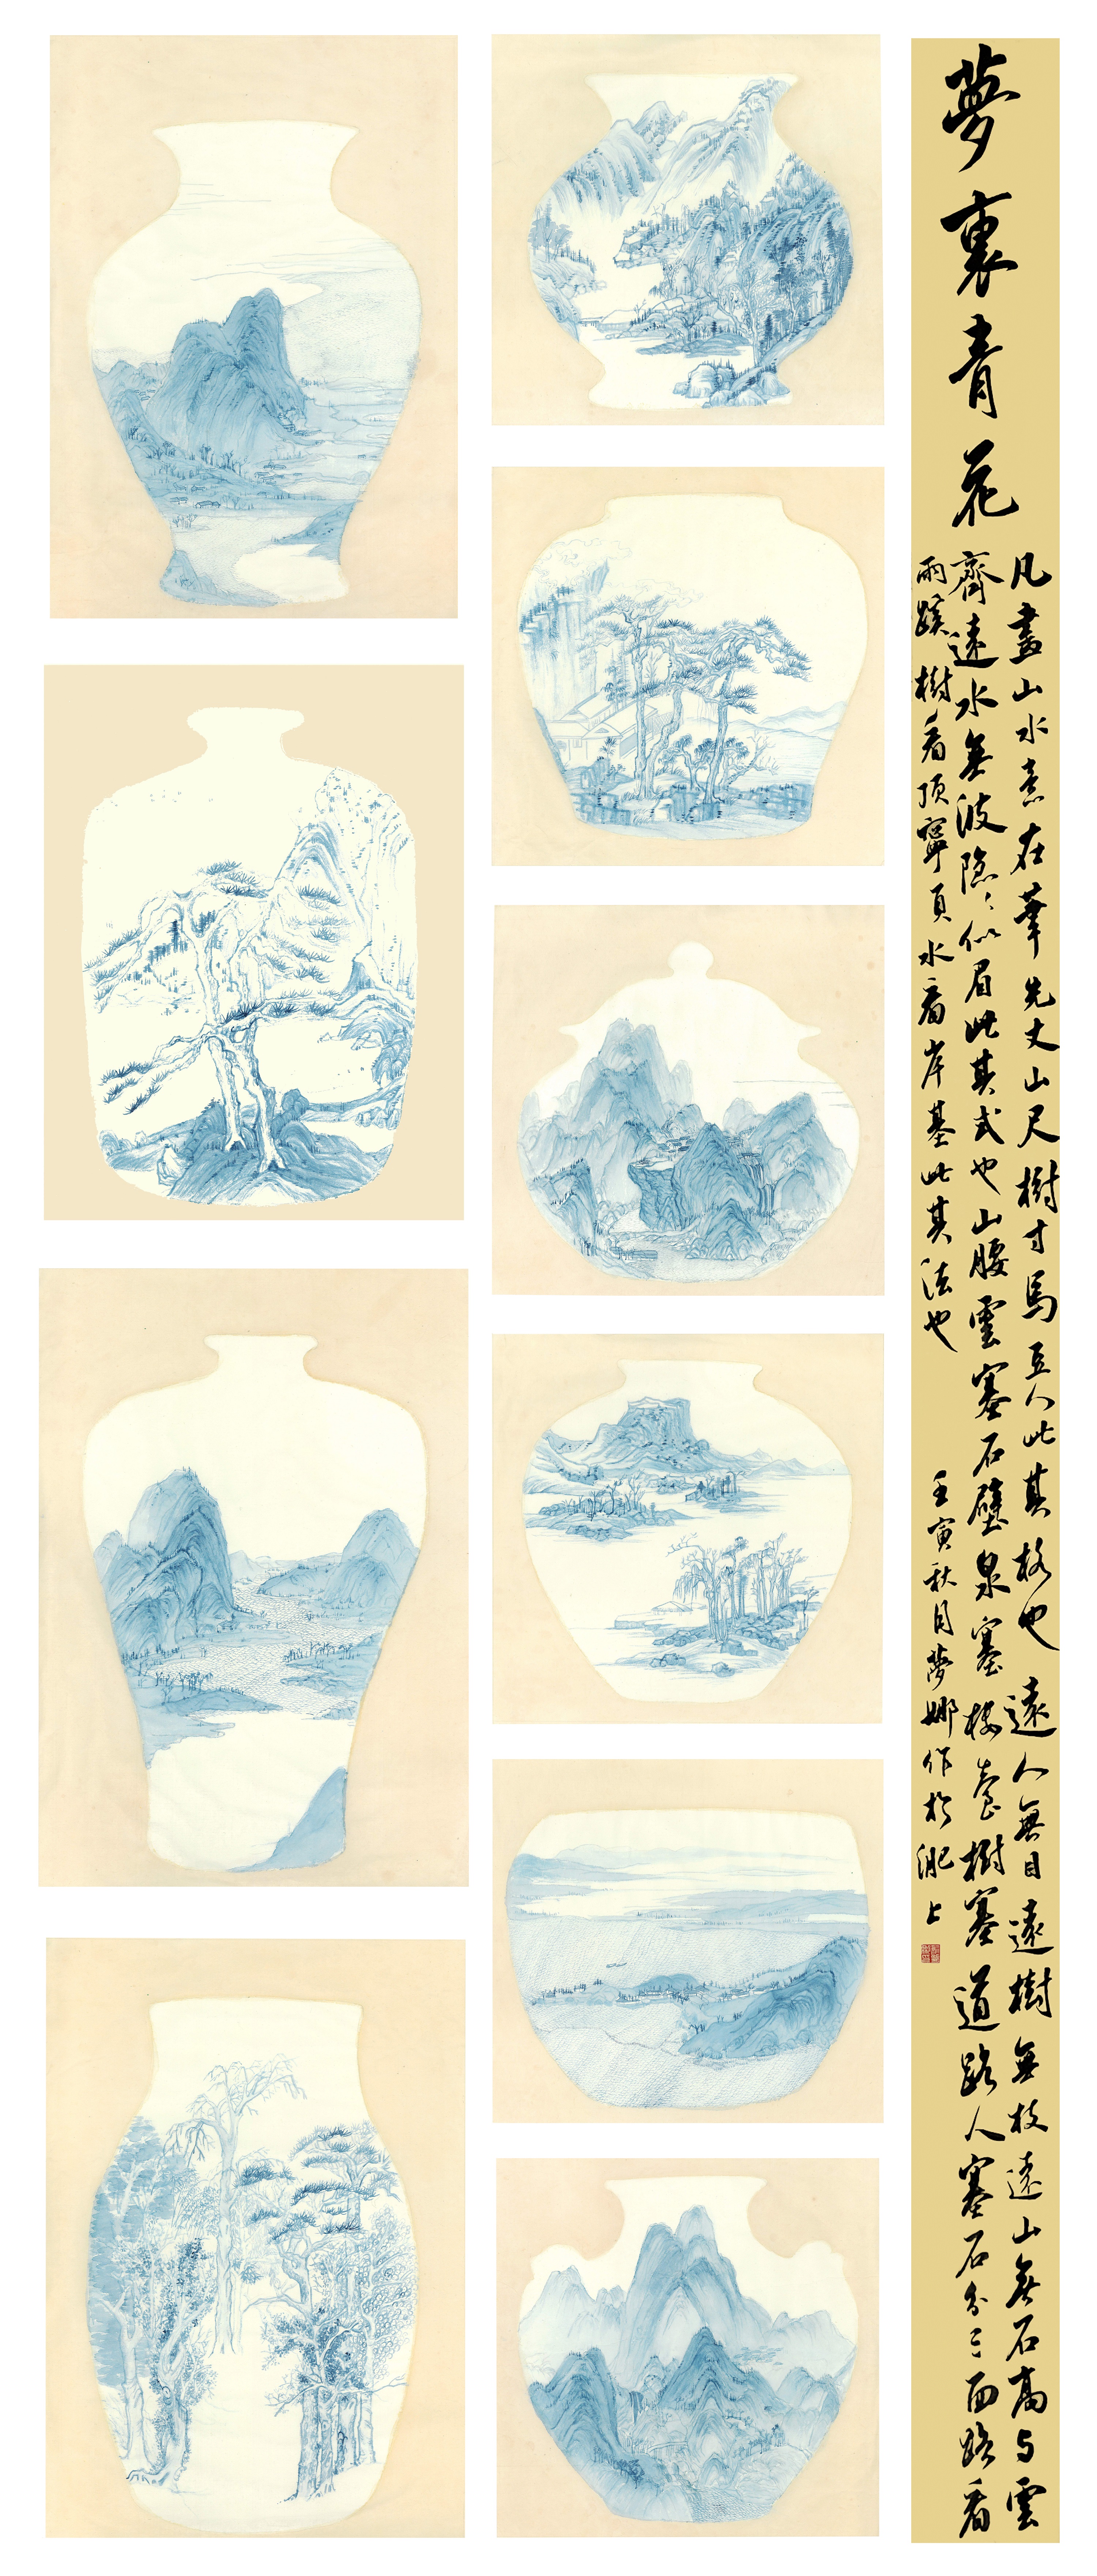 夢裏青花
凡畫山水意在筆先丈山尺樹寸馬豆人此其格也遠人無目遠樹無枝遠山無石高与雲
齊遠水無波隐〻似眉此其式也山腰雲塞石壁泉塞樓臺樹塞道路人塞石分三面路看
兩蹊樹看頂寧頁水看岸基此其法也
壬寅秋月夢娜作於淝上